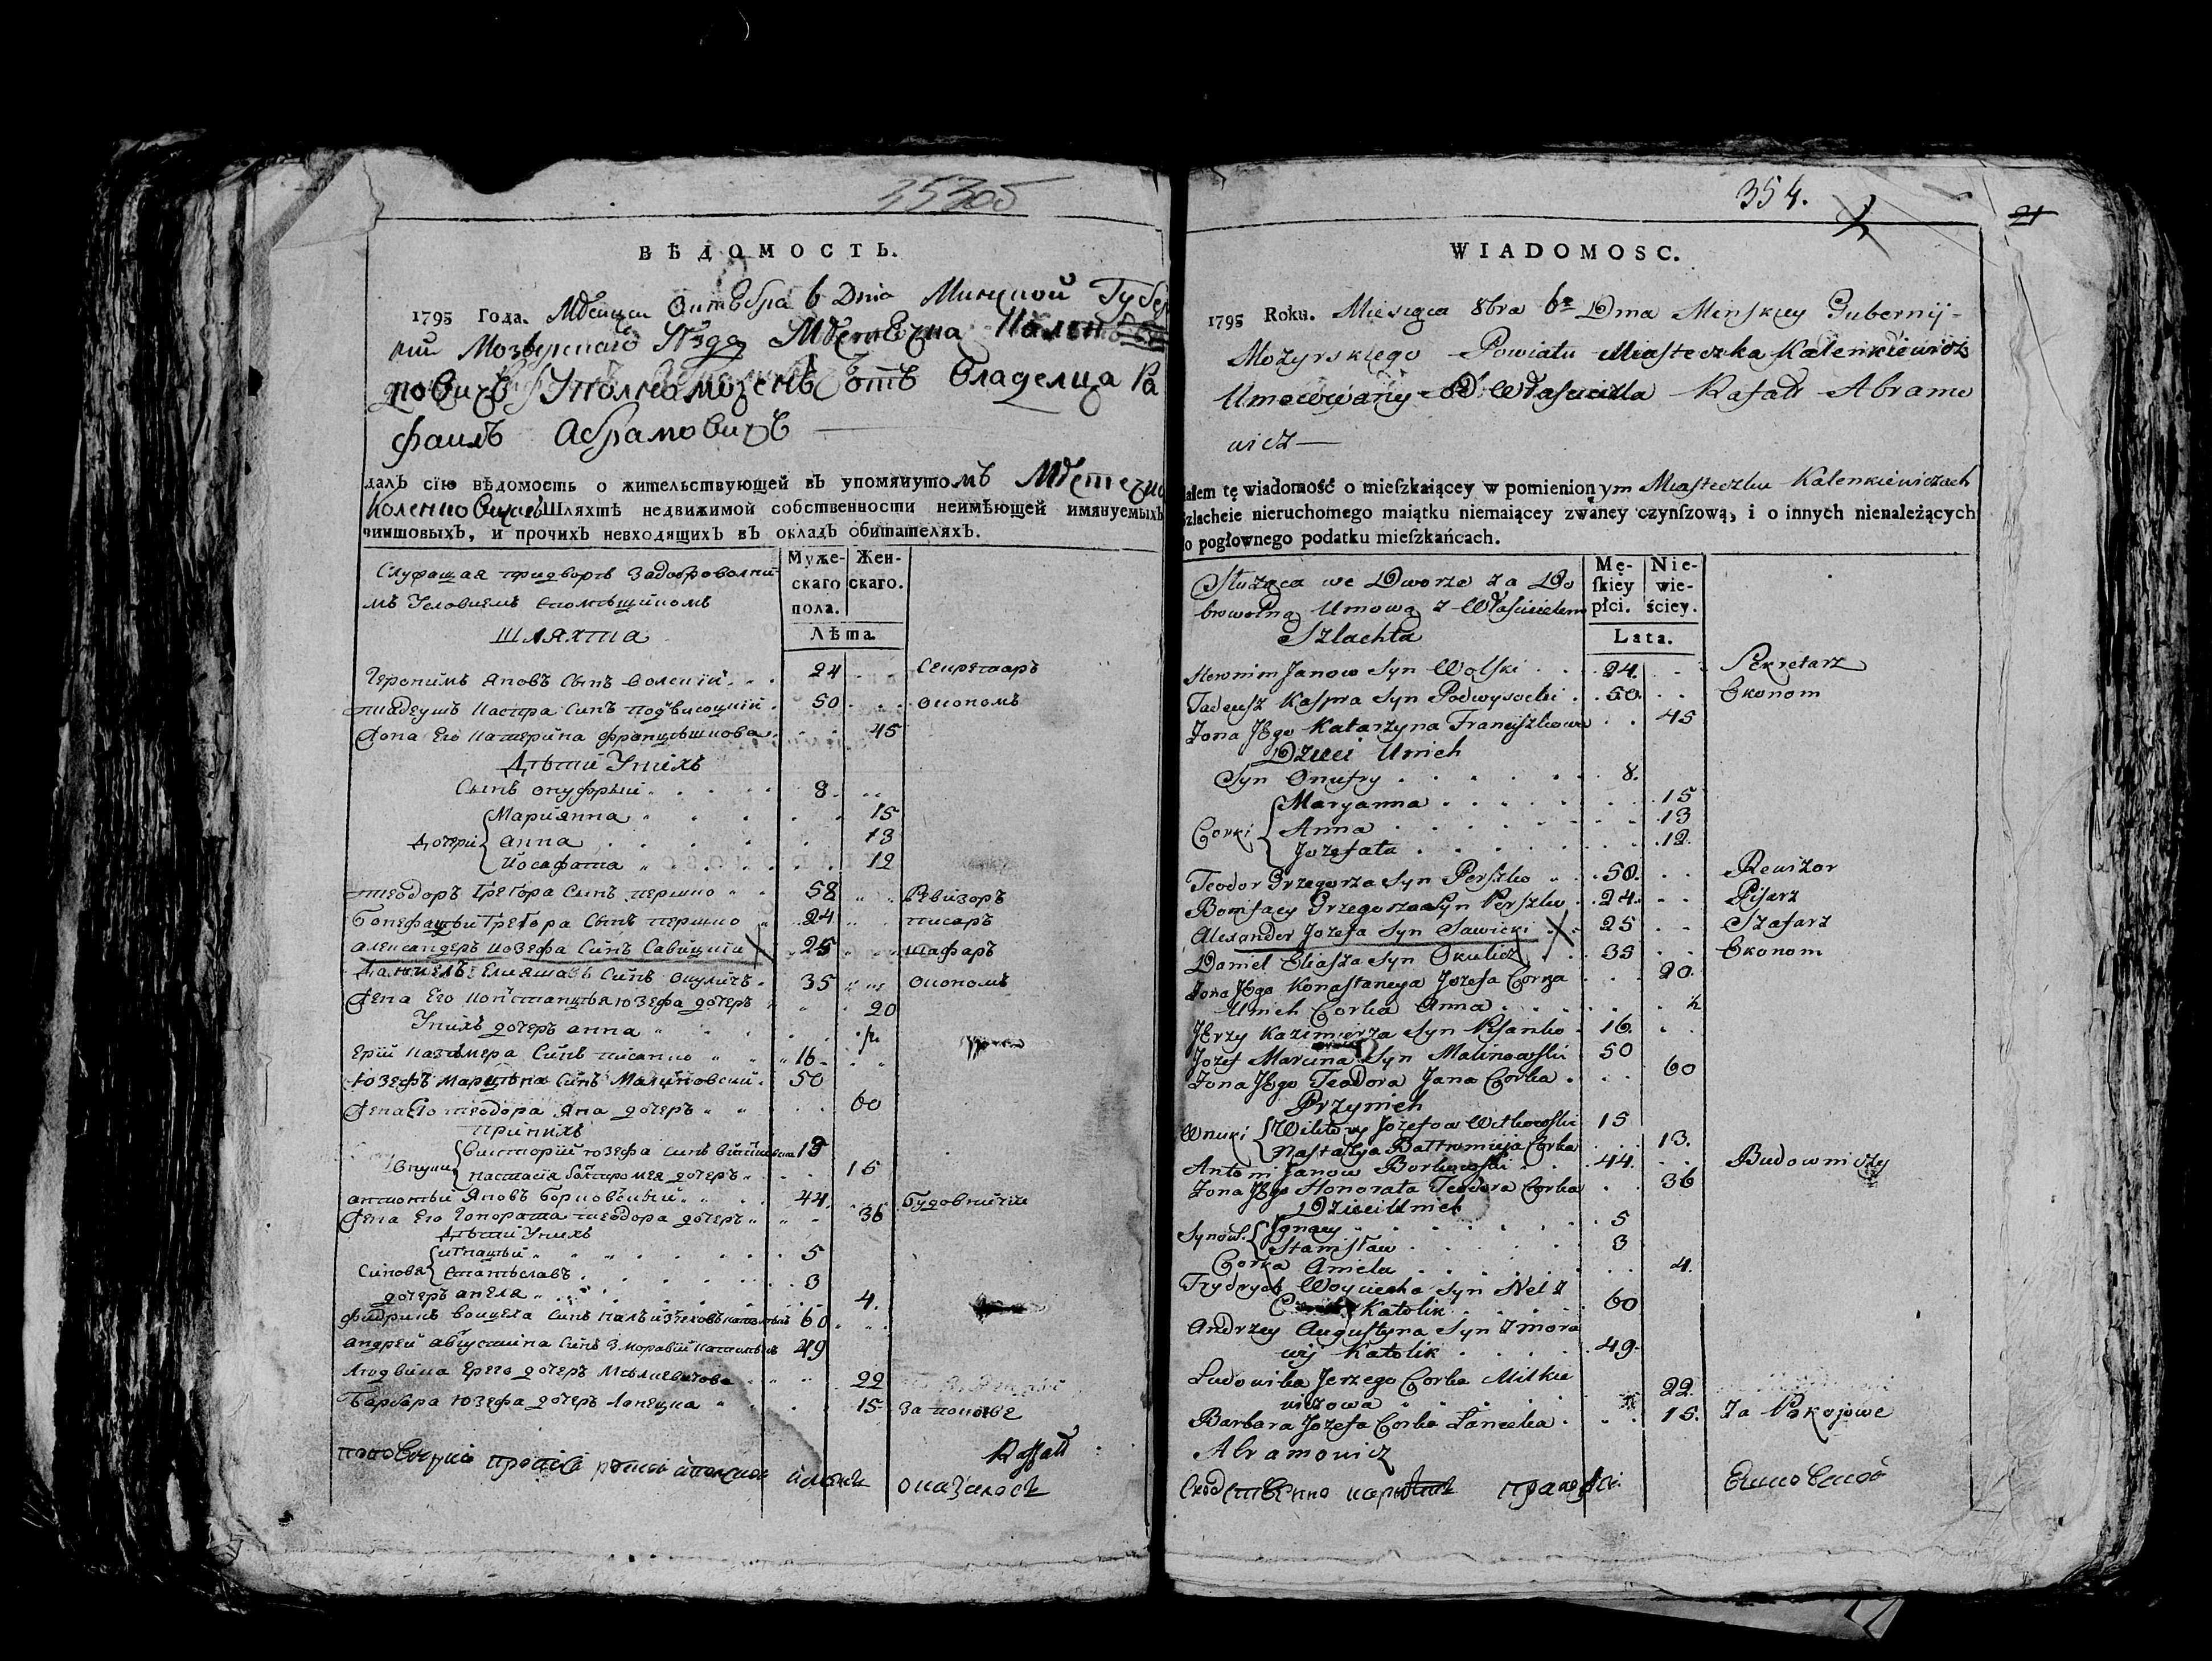 35305
ВѢДОМОСТЬ.
1795 Года. Мѣсяца Октебра 6 Дня Минской Губер
нии Мозырскаго Уѣзда Мѣстечка
Уполномоченъ отъ Владелца Ра
фаилъ Абрамовичъ
далъ сїю вѣдомость о жительствующей въ упомянутомъ Мѣстечку
Шляхтѣ недвижимой собственности неимѣющей имянуемыхъ
чиншовыхъ, и прочихъ невходящихъ въ окладъ обитателяхъ.
Служащая придворѣ Задоброволни
мъ Условиемъ
Шляхта
Муже- Жен-
скаго скаго.
пола.
Лѣта.
Геронимъ Яновъ Сынъ Волский 24 Секретаръ
тадеушъ Каспра Синъ подвисоцкий 50 економъ
Жона Его Катерина францѣшкова 45
Дѣти Унихъ
Сынъ онуфрый 8
Дочери Марианна 15
анна 13
Иосафата 12
теодоръ Грегора Синъ першко 58 Ревизоръ
Бонефацы Грегора Сынъ першко 24 писаръ
александеръ Иозефа Синъ Савицкий 25 шафаръ
Данѣелъ Елияша Синъ окуличъ 35 економъ
Жена Его Констанцѣя юзефа дочеръ 20
Унихъ дочеръ анна ½
Ерий Казимера Синъ писанко 16
юзефъ Марцѣна Синъ Малиновский 50
Жена Его теодора Яна дочеръ 60
При нихъ
Внуки Викторий юзефа синъ 15
настасия дочеръ 15
антоний Яновъ Борковский 44 Будовничий
Жена Его Гонората теодора дочеръ 36
Дѣти Унихъ
Синовя игнацый 5
Станѣславъ 3
дочеръ анеля 4.
фидрихъ войцеха Синъ 60
андрей августина Синъ Зморавий 49
Людвика Ерего дочеръ Мѣлкевичова 22
Барбара юзефа дочеръ Ланецка 15
Rafał
оказалось
354.
21
WIADOMOSC.
1795 Roku. Miesiąca 8bra 6go Dnia Minskiey Gubernij
Mozyrskiego Powiatu Miasteczka Kalenkiewicz
Umocowany od Właściciela Rafał Abramo
wicz
dałem tę wiadomość o mieſzkaiącey w pomienionym Miasteczku Kalenkiewiczach
Szlacheie nieruchomego maiątku niemaiącey zwaney czynſzową, i o innych nienależących
do pogłownego podatku mieſzkańcach.
Służąca we Dworze za Do
browolną Umową z Właścicielem
Szlachta
Mę- Nie-
ſkiey wie-
płci. ściey.
Lata.
Hieronim Janow Syn Wolski 24 Sekretarz
Tadeusz Kaspra Syn Podwysocki 50 Ekonom
Żona Jego Katarzyna Franciszkowa 45
Dzieci Unich
Syn Onufry 8.
Corki Maryanna 15
Anna 13
Jozefata 12
Teodor Grzegorza Syn Perszko 58. Rewizor
Bonifacy Grzegorza Syn Perszko 24 Pisarz
Alexander Jozefa Syn Sawicki 25 Szafarz
Daniel Eliasza Syn Okulicz 35 Ekonom
Żona Jego Konstancya Jozefa Corka 20
Unich Corka Anna ½
Jerzy Kazimierza Syn Pisanko 16
Jozef Marcina Syn Malinowski 50
Żona Jego Teodora Jana Corka 60
Przynich
Wnuki Wiktory Jozefow Witkowski 15
Nastazya Bałtromieja Corka 13.
Antoni Janow Borkowski 44 Budowniczy
Żona Jego Honorata Teodora Corka 36
Dzieci Unich
Synow. Ignacy 5
Stanisław 3
Corka Aniela 4.
Frydrych Woyciecha Syn
Katolik 60
Andrzey Augustyna Syn Zmora
wij Katolik 49
Ludowika Jerzego Corka Milkie
wiczowa 22
Barbara Jozefa Corka Łanecka 15. Za Pokojowe
Abramowicz